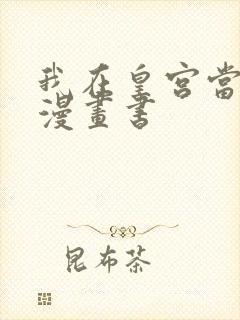 我在皇宮當
漫畫書
昆布茶